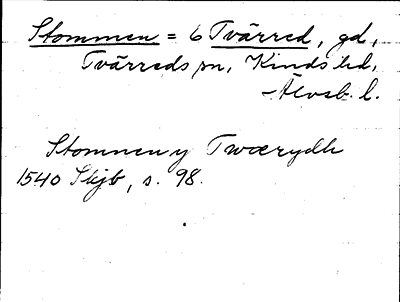 Stommen = 6 Tvärred, gd,
Tvärreds sn, Kinds hd,
Älvsb. l.
Stommen y Twærydh
1540 Skjb, s. 98.